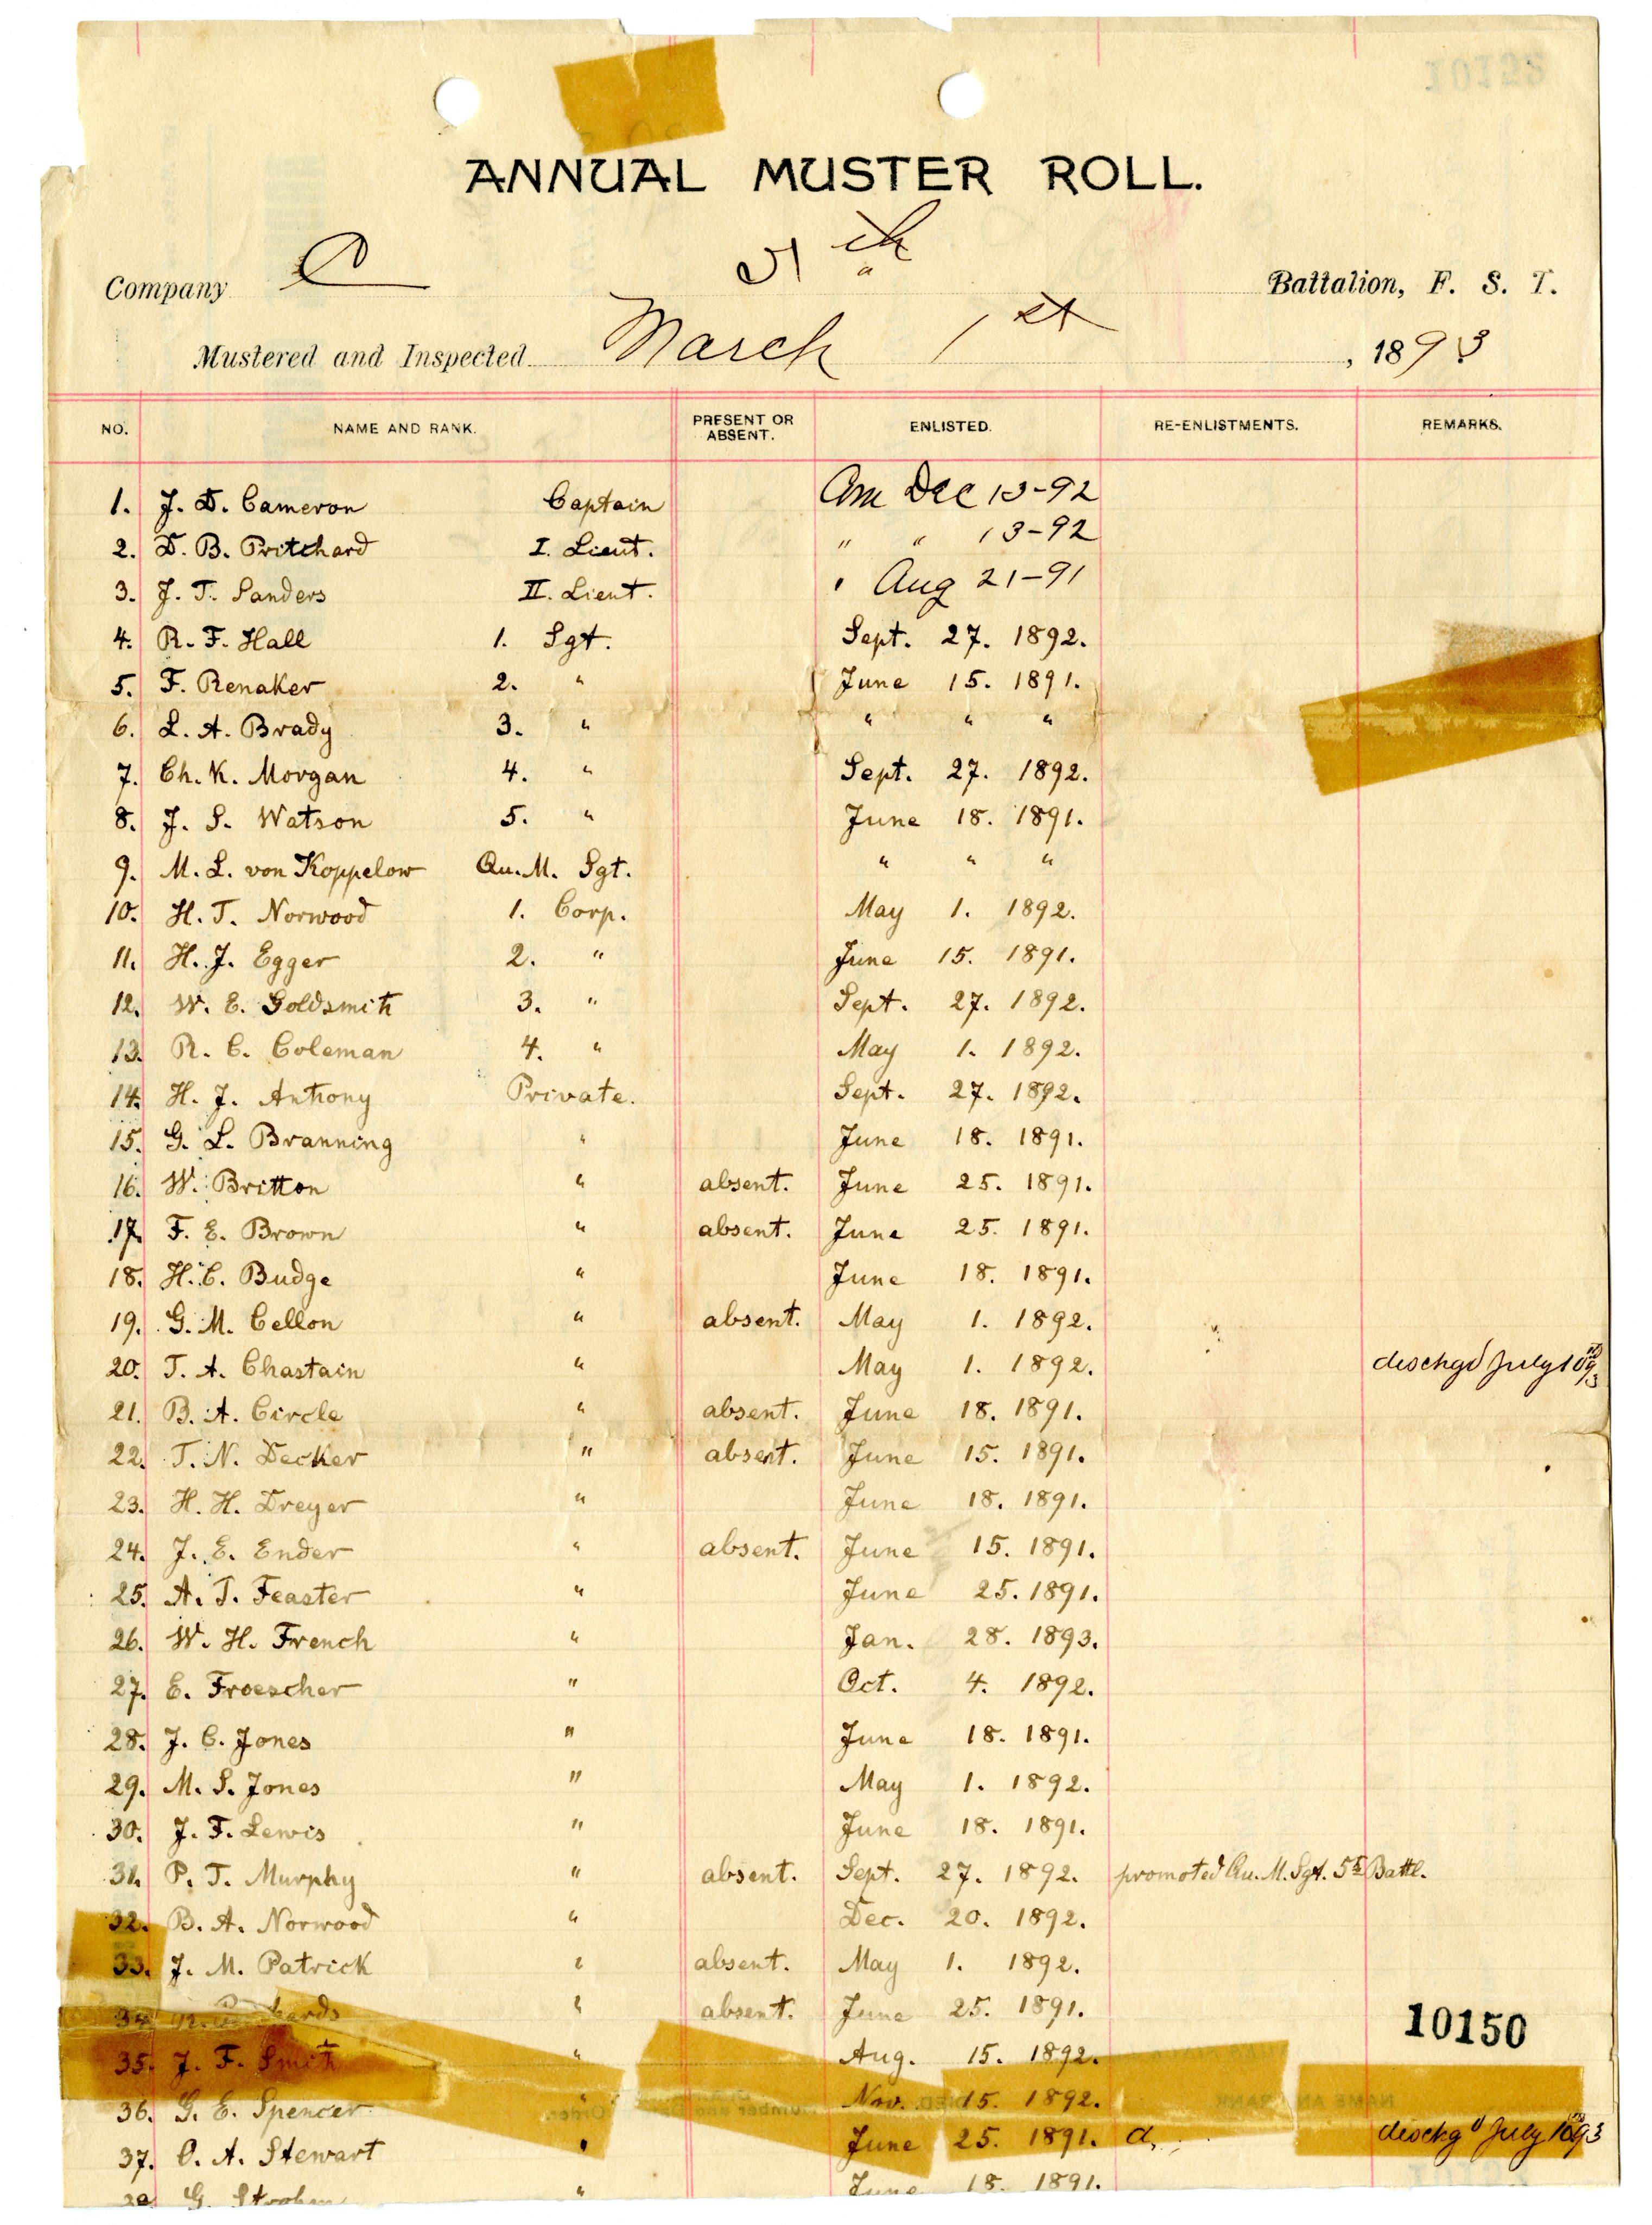 10152
ANNUAL MUSTER ROLL.
Company C 5th Battalion, F. S. T.
Mustered and Inspected March 1st, 1893
NO. NAME AND RANK. PRESENT OR ABSENT. ENLISTED. RE-ENLISTMENTS. REMARKS.
1. J. D. Cameron Captain Com Dec 13-92
2. D. B. Pritchard I. Lieut. " " 13-92
3. J. T. Sanders II. Lieut. " Aug 21-91
4. R. F. Hall 1. Sgt. Sept. 27. 1892.
5. F. Renaker 2. " June 15. 1891.
6. L. A. Brady 3. " " " "
7. Ch. K. Morgan 4. " Sept. 27. 1892.
8. J. S. Watson 5. " June 18. 1891.
9. M. L. von Koppelow Qu. M. Sgt. " " "
10. H. T. Norwood 1. Corp. May 1. 1892.
11. H. J. Egger 2. " June 15. 1891.
12. W. E. Goldsmith 3. " Sept. 27. 1892.
13. R. C. Coleman 4. " May 1. 1892.
14. H. J. Anthony Private. Sept. 27. 1892.
15. G. L. Branning " June 18. 1891.
16. W. Britton " absent. June 25. 1891.
17. F. E. Brown " absent. June 25. 1891.
18. H. C. Budge " June 18. 1891.
19. G. M. Cellon " absent. May 1. 1892.
20. T. A. Chastain " May 1. 1892. dischgd July 10 93
21. B. A. Circle " absent. June 18. 1891.
22. T. N. Decker " absent. June 15. 1891.
23. H. H. Dreyer " June 18. 1891.
24. J. E. Ender " absent. June 15. 1891.
25. A. T. Feaster " June 25. 1891.
26. W. H. French " Jan. 28. 1893.
27. E. Froescher " Oct. 4. 1892.
28. J. C. Jones " June 18. 1891.
29. M. S. Jones " May 1. 1892.
30. J. F. Lewis " June 18. 1891.
31. P. T. Murphy " absent. Sept. 27. 1892. promoted Qu. M. Sgt. 5t Battl.
32. B. A. Norwood " Dec. 20. 1892.
33. J. M. Patrick " absent. May 1. 1892.
34. " absent. June 25. 1891.
10150
35. J. F. Smith " Aug. 15. 1892.
36. G. E. Spencer " Nov. 15. 1892.
37. O. A. Stewart " June 25. 1891. d. dischgd July 10 93
38. G. " June 18. 1891.